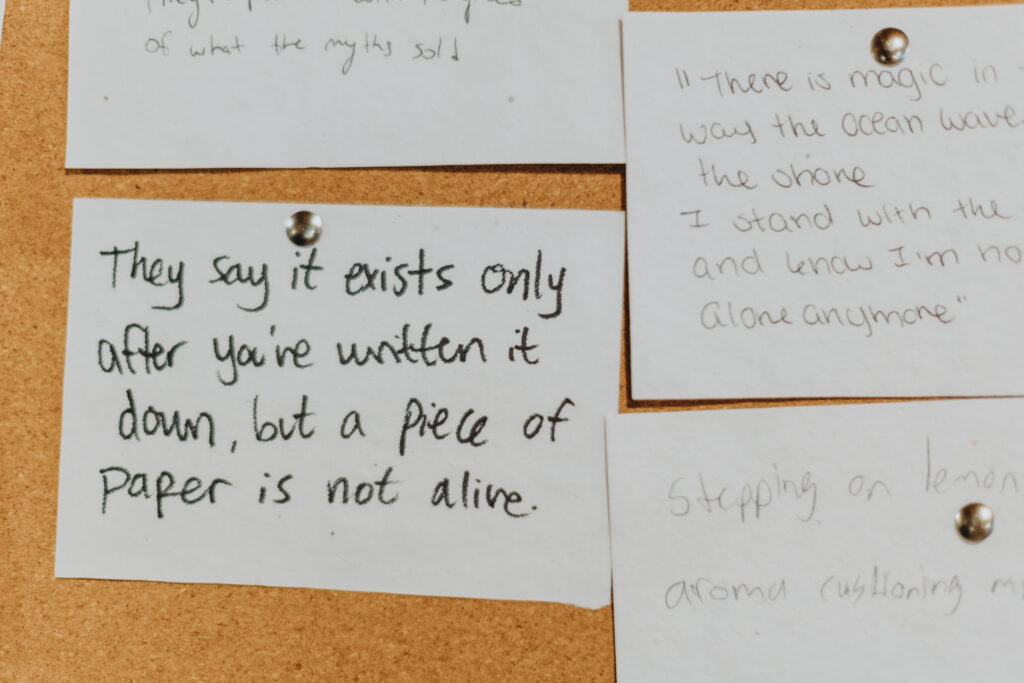 of what the myths sold
They say it exists only
after you've written it
down, but a piece of
paper is not alive.
"There is magic in
way the ocean wave
the shore
I stand with the
and know I'm no
alone anymore"
Stepping on lemon
aroma cushioning my